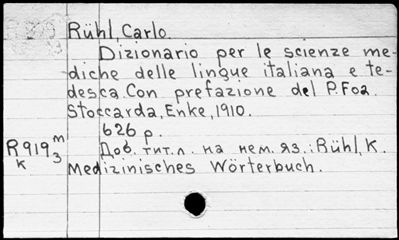 Rühl, Carlo.
Dizionario per le scienze me-
diche delle lingue italiana e te-
desca. Con prefazione del P. Foa.
Stoccarda, Enke, 1910.
626 p.
R919 m
к 3
Доб. тит. л. на нем. яз.: Rühl, K.
Medizinisches Wörterbuch.